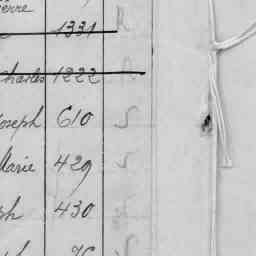 ierre
1331 R
Charles 1222 R
Joseph 610 S
Marie 429 S
ph 430 S
76 S